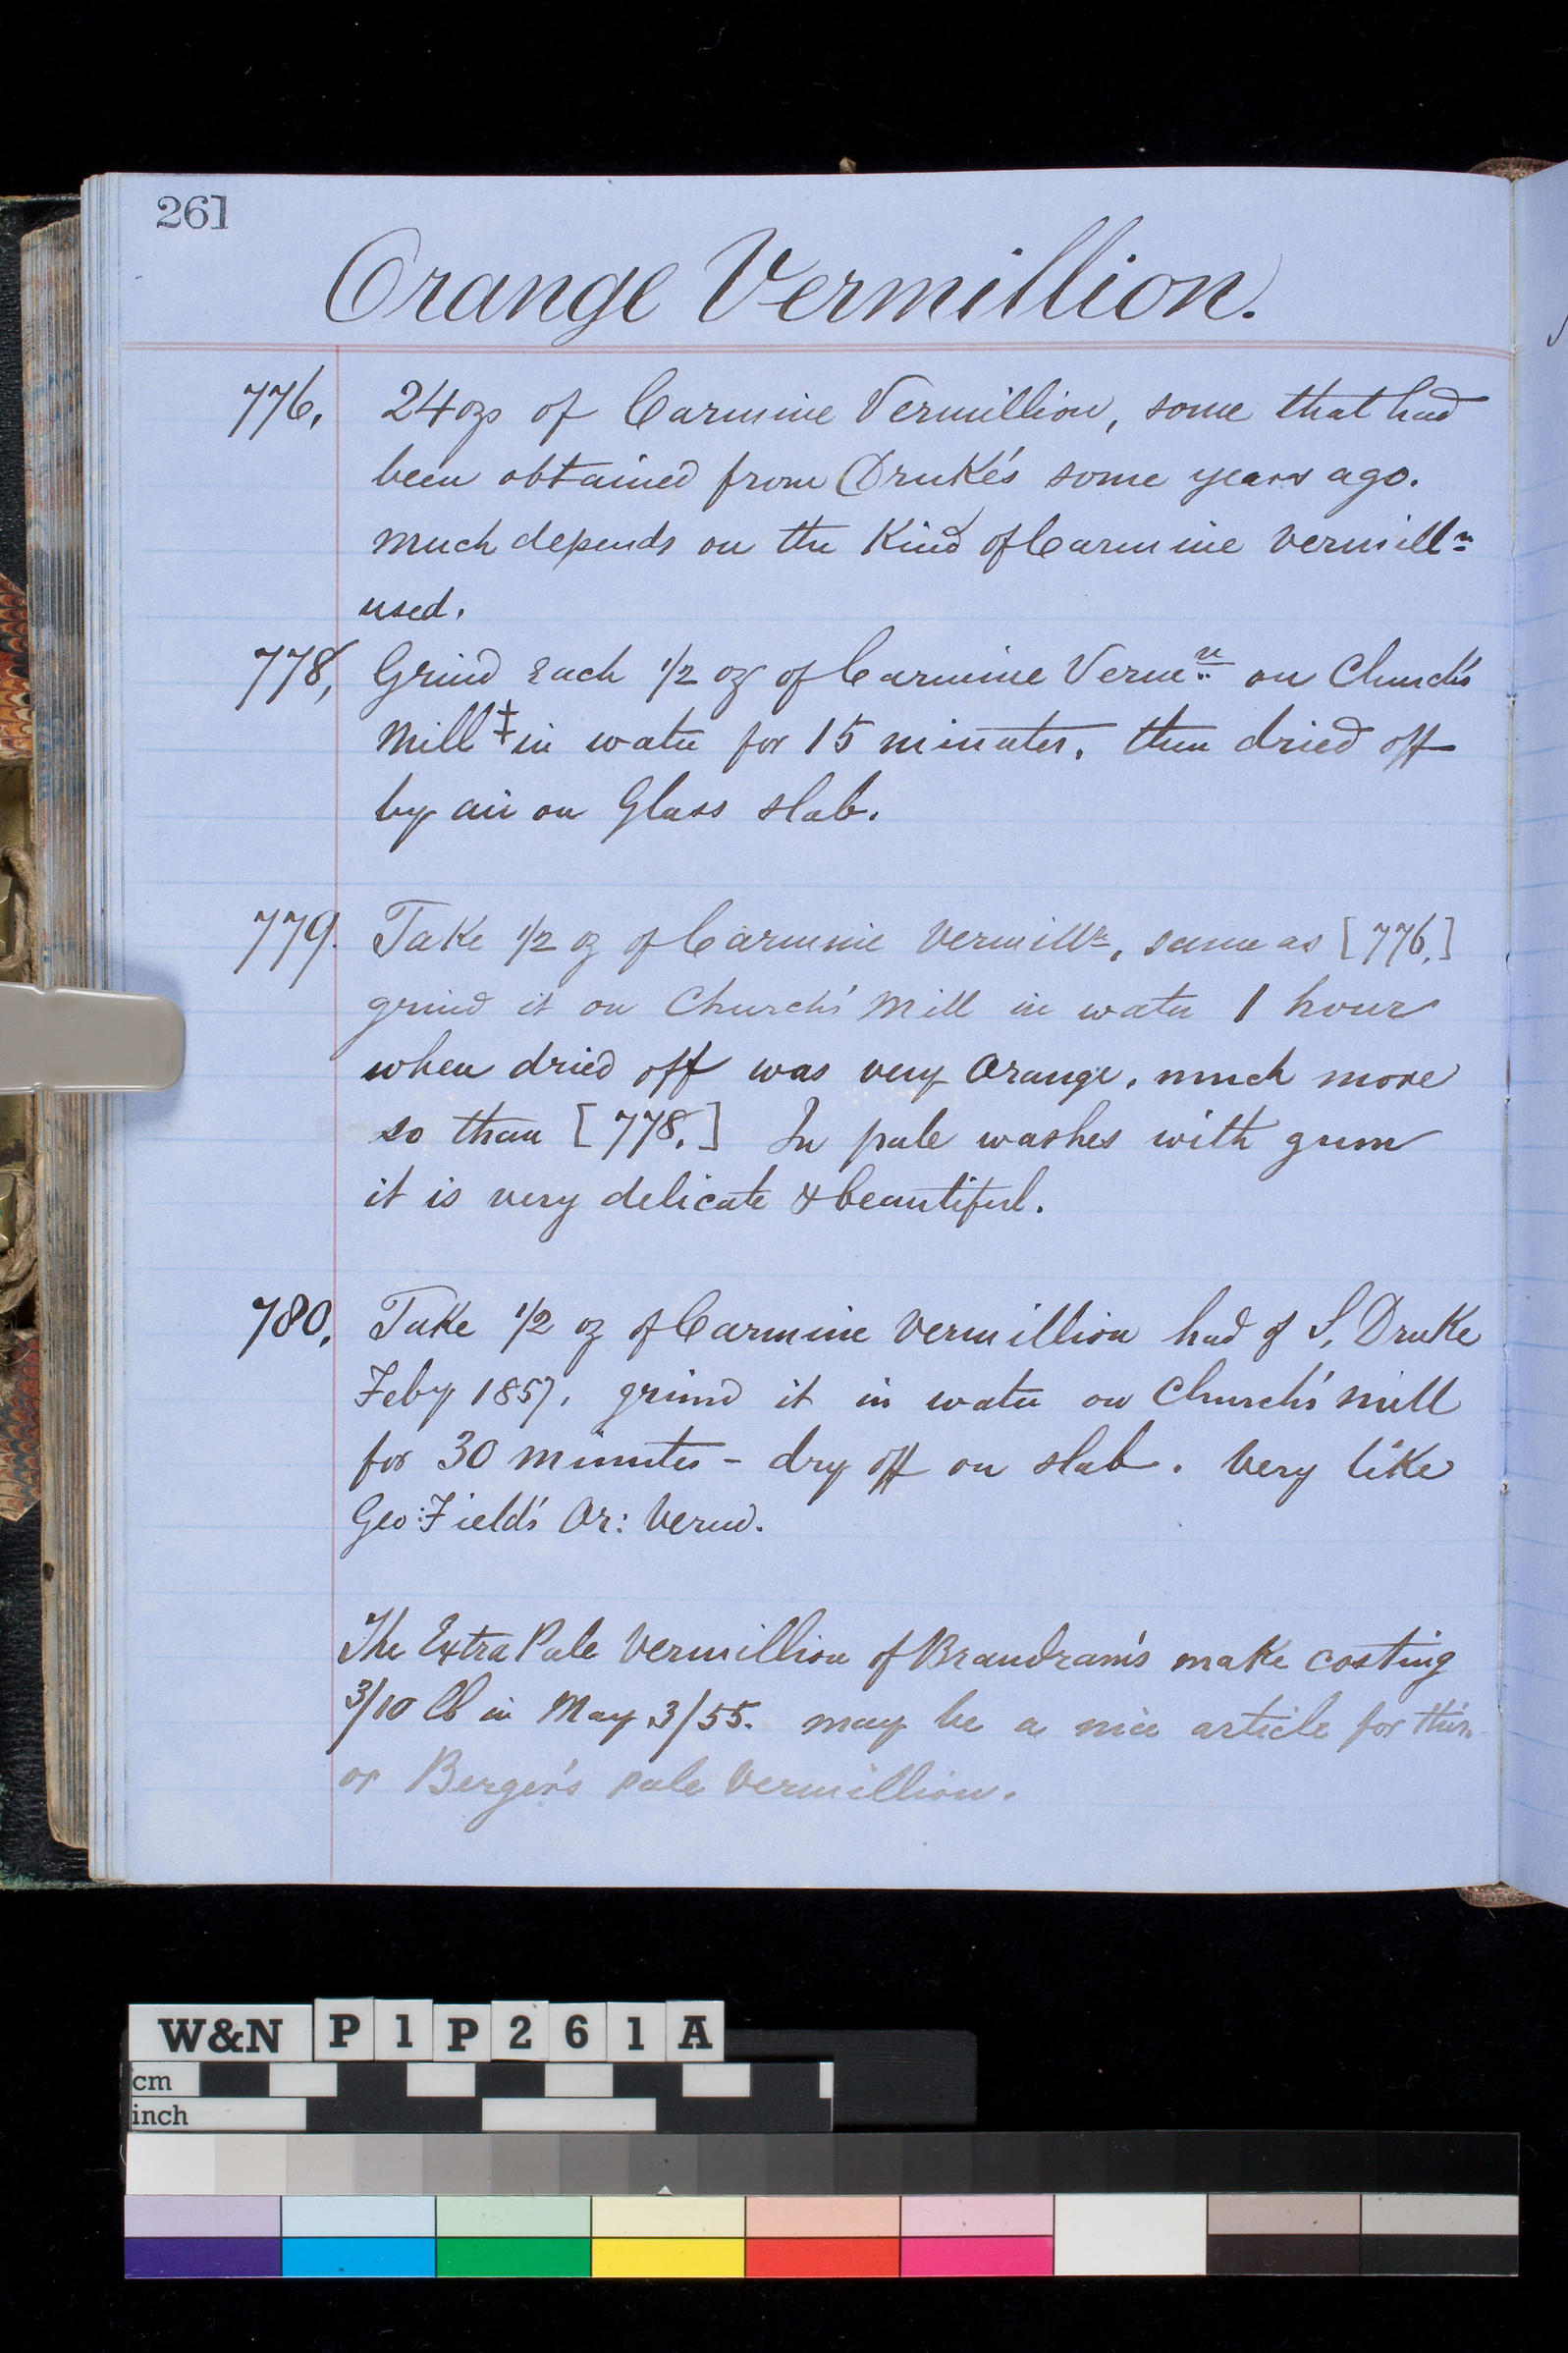 261
Orange Vermillion.
776, 24 ozs of Carmine Vermillion, some that had
been obtained from Druke's some years ago.
much depends on the Kind of Carmine vermillⁿ
used.
778, Grind Each 1/2 oz of Carmine Vermⁿ on Church's
Mill ‡ in water for 15 minutes. then dried off
by air on Glass slab.
779. Take 1/2 oz of Carmine Vermillⁿ, same as [776.]
grind it on Church's Mill in water 1 hour
when dried off was very Orange, much more
so than [778.] In pale washes with gum
it is very delicate & beautiful.
780, Take 1/2 oz of Carmine Vermillion had of S, Druke
Feby 1857, grind it in water on Church's mill
for 30 minutes - dry off on slab. Very like
Geo: Field's Or: Verm.
The Extra Pale Vermillion of Brandram's make costing
3/10 lb in May 3/55. may be a nice article for this.
or Berger's pale Vermillion.
W&N P1P261A
cm
inch